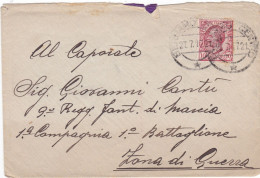 Al Caporale
Sig Giovanni Cantù
9º Regg. Fant. di marcia
1ª Compagnia 1º Battaglione
Zona di Guerra